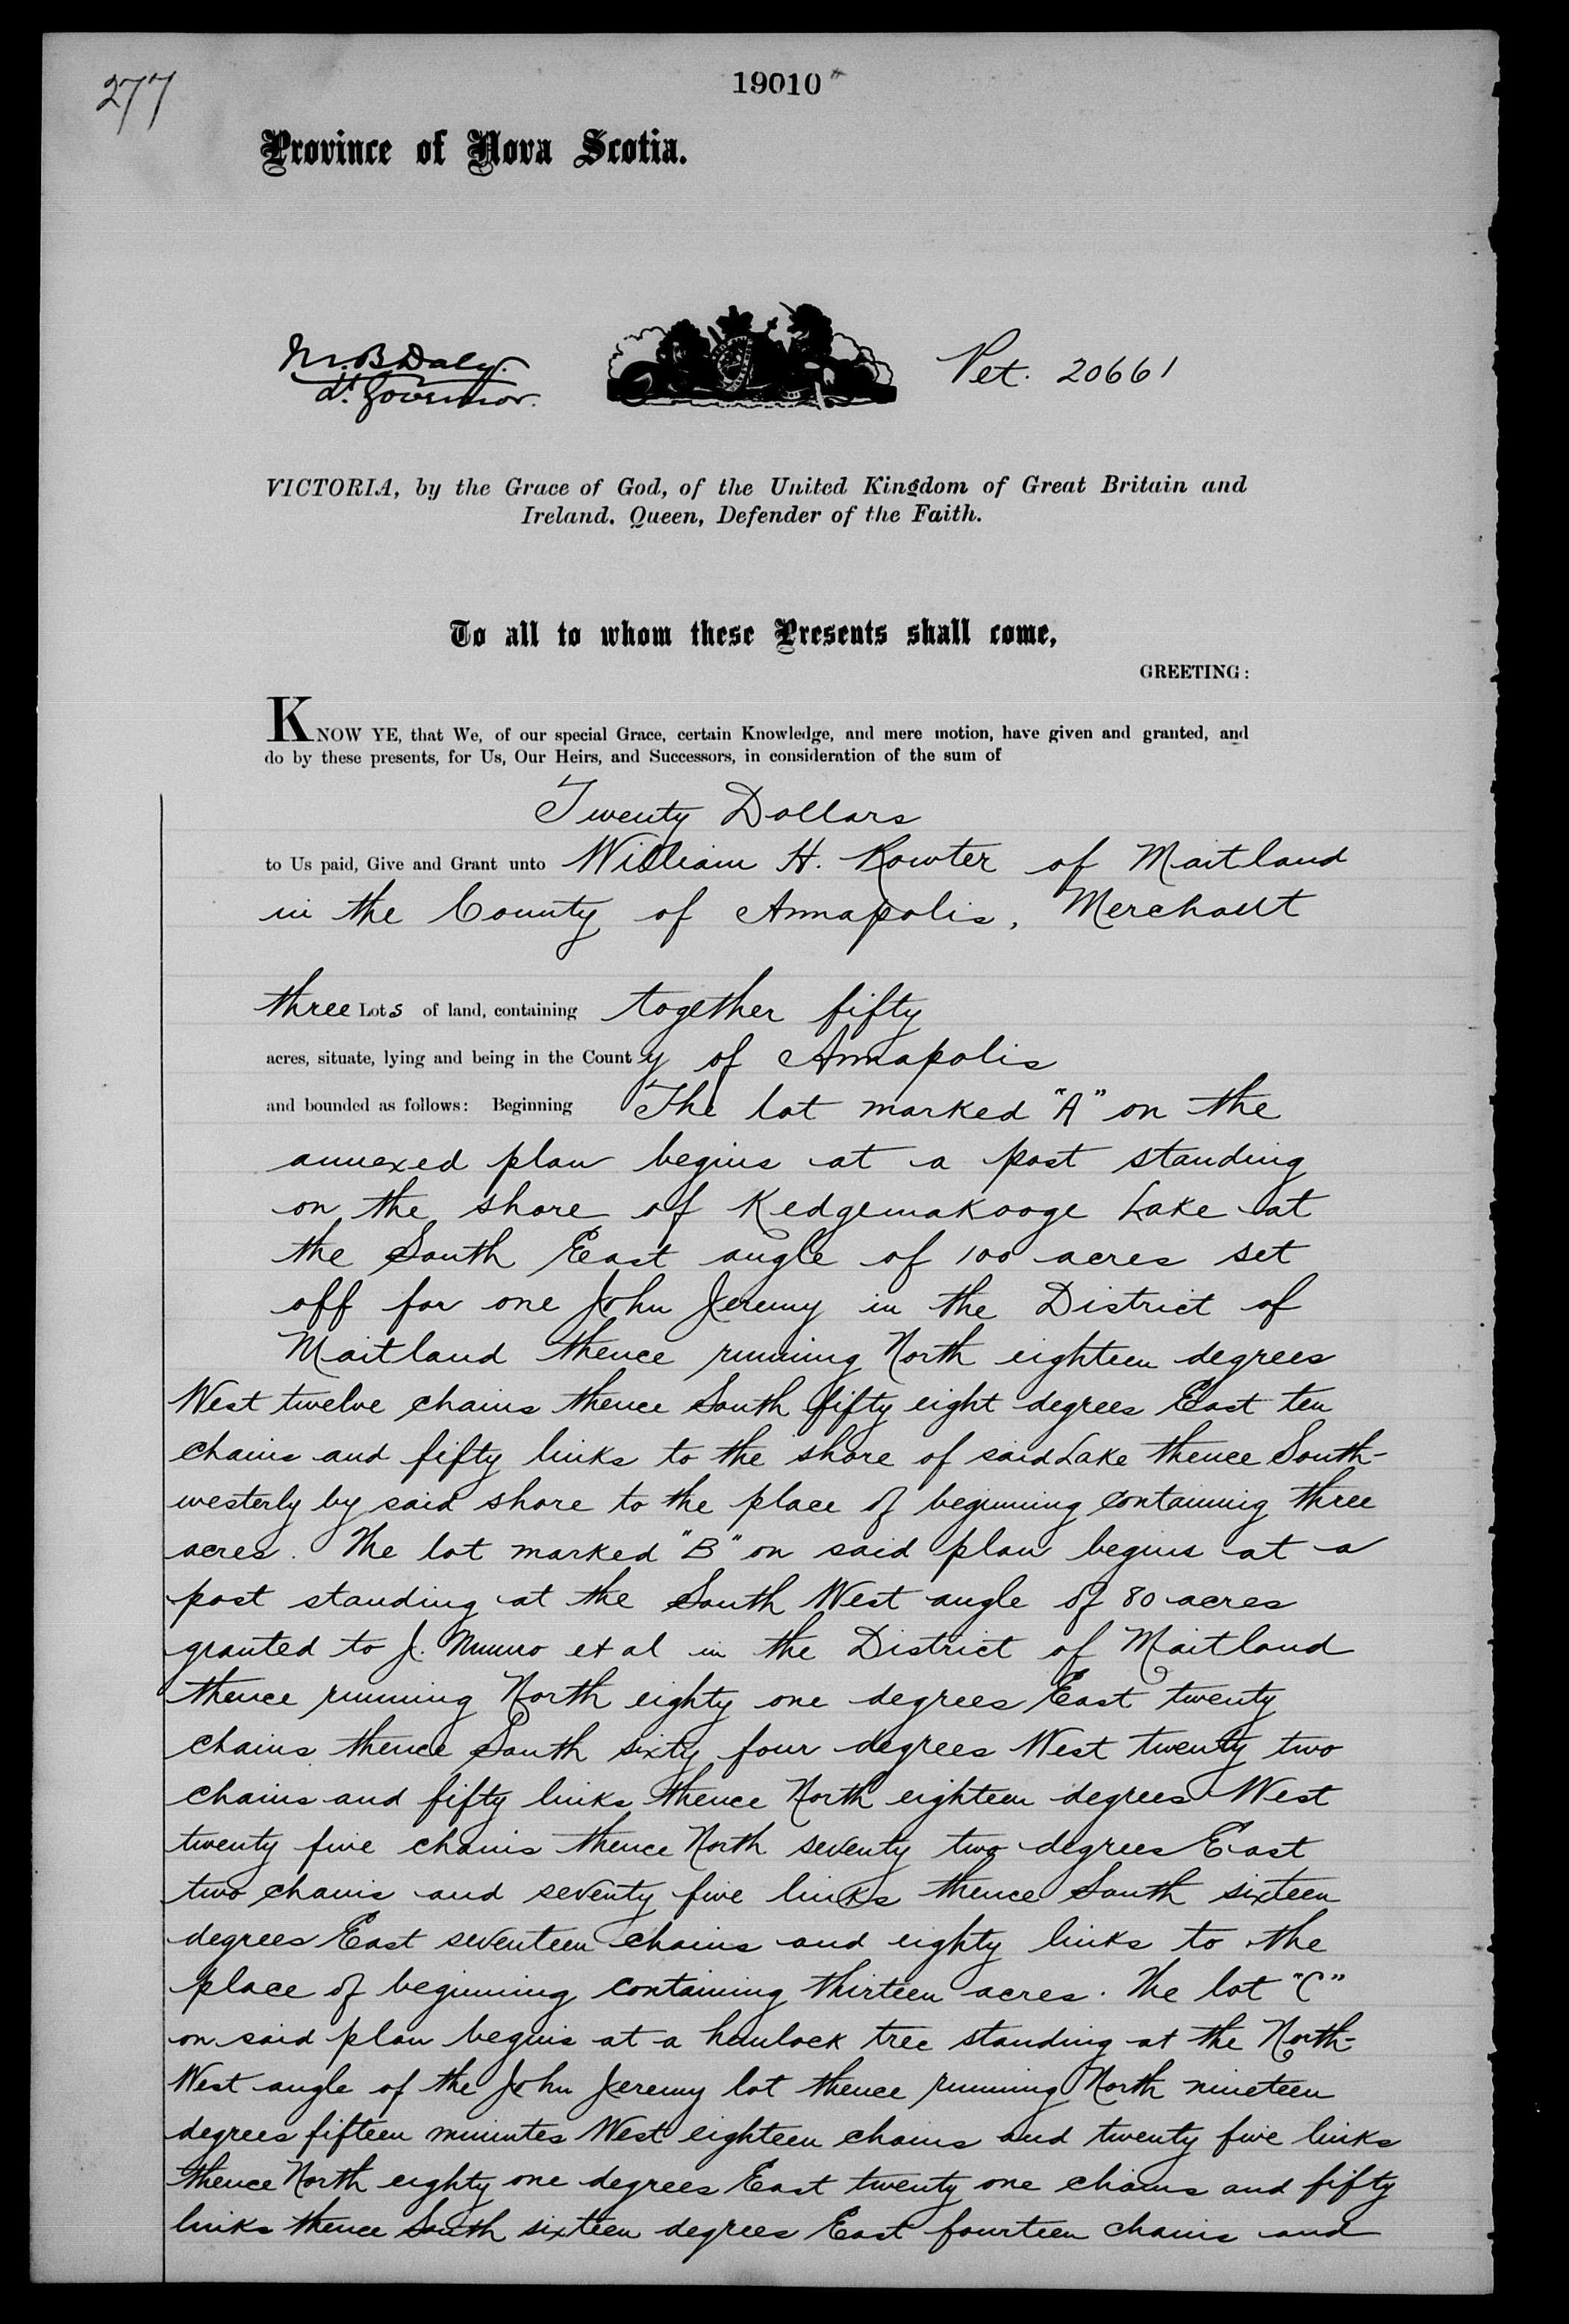 277
19010
Province of Nova Scotia.
M. B Daly.
Lt. Governor.
Pet. 20661
VICTORIA, by the Grace of God, of the United Kingdom of Great Britain and
Ireland, Queen, Defender of the Faith.
To all to whom these Presents shall come,
GREETING:
KNOW YE, that We, of our special Grace, certain Knowledge, and mere motion, have given and granted, and
do by these presents, for Us, Our Heirs, and Successors, in consideration of the sum of
Twenty Dollars
to Us paid, Give and Grant unto William H. Rowter of Maitland
in the County of Annapolis, Merchant
three Lots of land, containing together fifty
acres, situate, lying and being in the County of Annapolis
and bounded as follows: Beginning The lot marked "A" on the
annexed plan begins at a post standing
on the shore of Kedgemakooge Lake at
the South East angle of 100 acres set
off for one John Jeremy in the District of
Maitland thence running North eighteen degrees
West twelve chains thence South fifty eight degrees East ten
chains and fifty links to the shore of said Lake thence South-
westerly by said shore to the place of beginning containing three
acres. The lot marked "B" on said plan begins at a
post standing at the South West angle of 80 acres
granted to J. Munro et al in the District of Maitland
thence running North eighty one degrees East twenty
chains thence South sixty four degrees West twenty two
chains and fifty links thence North eighteen degrees West
twenty five chains thence North seventy two degrees East
two chains and seventy five links thence South sixteen
degrees East seventeen chains and eighty links to the
place of beginning containing thirteen acres. The lot "C"
on said plan begins at a hemlock tree standing at the North-
West angle of the John Jeremy lot thence running North nineteen
degrees fifteen minutes West eighteen chains and twenty five links
thence North eighty one degrees East twenty one chains and fifty
links thence South sixteen degrees East fourteen chains and